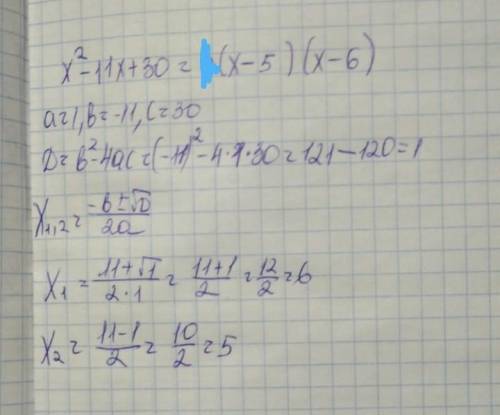 x²-11x+30 = (x-5)(x-6)
a=1, b=-11, c=30
D=b²-4ac=(-11)²-4·1·30=121-120=1
x₁,₂=\frac{-b±√D}{2a}
x₁=\frac{11+√1}{2·1}=\frac{11+1}{2}=\frac{12}{2}=6
x₂=\frac{11-1}{2}=\frac{10}{2}=5